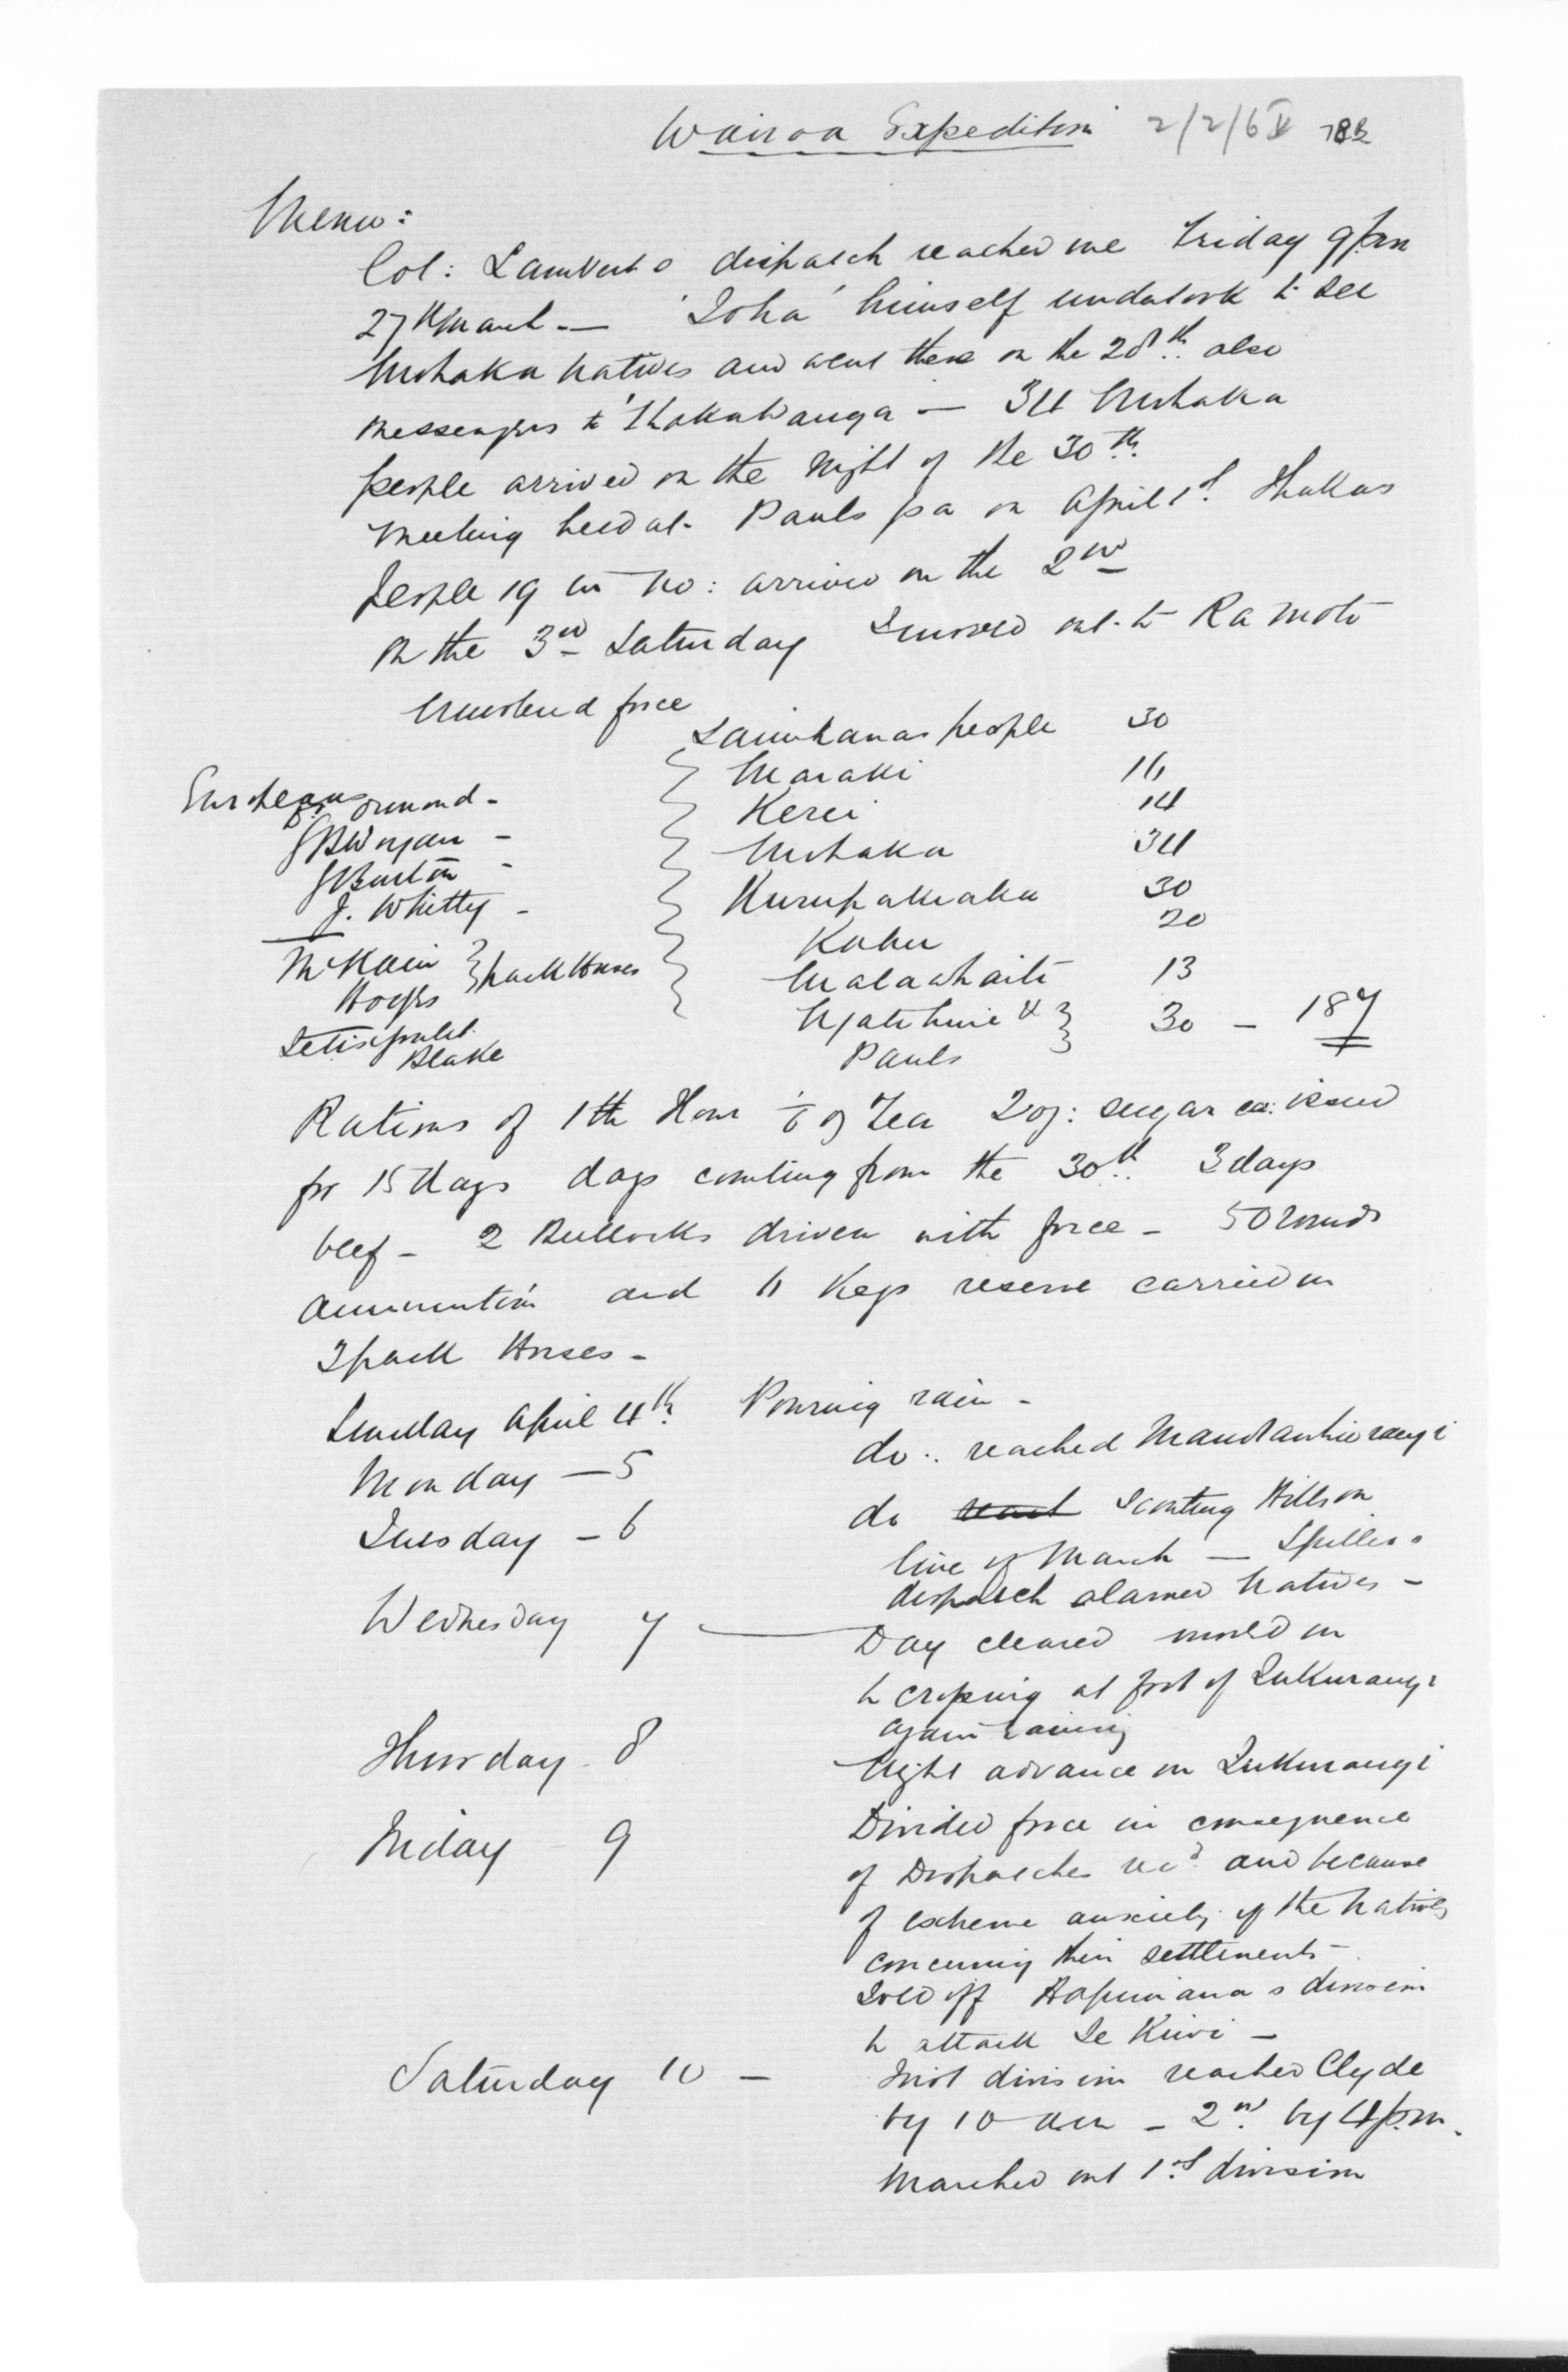 Wairoa Expedition 2/2/6
Memo:
Col: Lamberts dispatch reached me Friday 9 pm
27th March — 'Ioha' himself undertook to see
Mohaka Natives and went there on the 28th. also
Messengers to Ihakawhanga — 34 Mohaka
people arrived on the night of the 30th.
Meeting held at Pauls pa on April 1st. Ihakas
people 19 in No: arrived on the 2nd
On the 3rd Saturday I moved out to Ramoto
Mustered force
people 30
Maraki 16
Europeans Ormond -
Kerei 14
GBWorgan -
Mohaka 34
Burton -
Kurupakiaka 30
J. Whitty -
Kahu 20
McKain } pack Horses
Matawhaiti 13
Ngatihuie & } 30 — 187
Pauls
Blake
Rations of 1 lb flour 1/6 oz Tea 2 oz: sugar ea: issued
for 15 days days counting from the 30th. 3 days
beef - 2 Bullocks driven with force - 50 rounds
ammunition and 6 Kegs reserve carried on
3 pack Horses -
Sunday April 4th. Pouring rain -
Monday — 5 do.. reached
Tuesday — 6 do scouting Hills on
line of March — Spillers
dispatch alarmed Natives -
Wednesday 7 — Day cleared moved on
to crossing at foot of Tukurangi
again raining
Thursday - 8 Night advance on Tukurangi
Friday - 9 Divided force in consequence
of Dispatches recd. and because
of extreme anxiety of the Natives
concerning their settlements -
Told off Hapimanas division
to attack Te Kiwi —
Saturday 10 — First division reached Clyde
by 10 am - 2nd by 4 pm.
Marched out 1st division